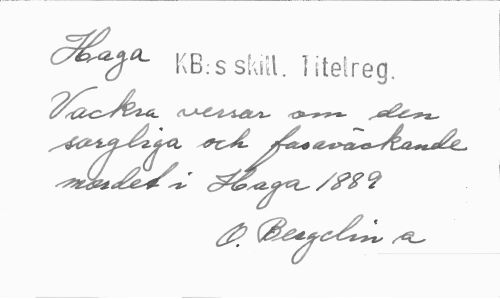 Haga KB:s skill. Titelreg.
Vackra versar om den
sorgliga och fasaväckande
mordet i Haga 1889
O. Bergelin a